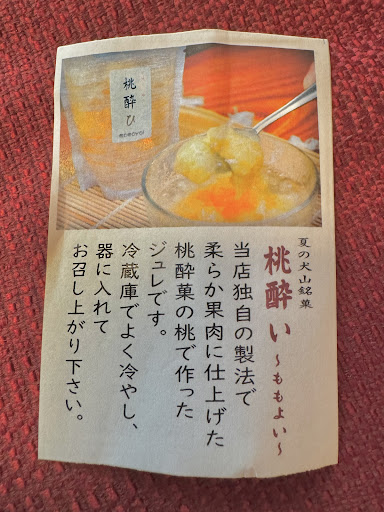 桃酔ひ
夏の犬山銘菓
桃酔い～ももよい～
当店独自の製法で
柔らか果肉に仕上げた
桃酔菓の桃で作った
ジュレです。
冷蔵庫でよく冷やし、
器に入れて
お召し上がり下さい。